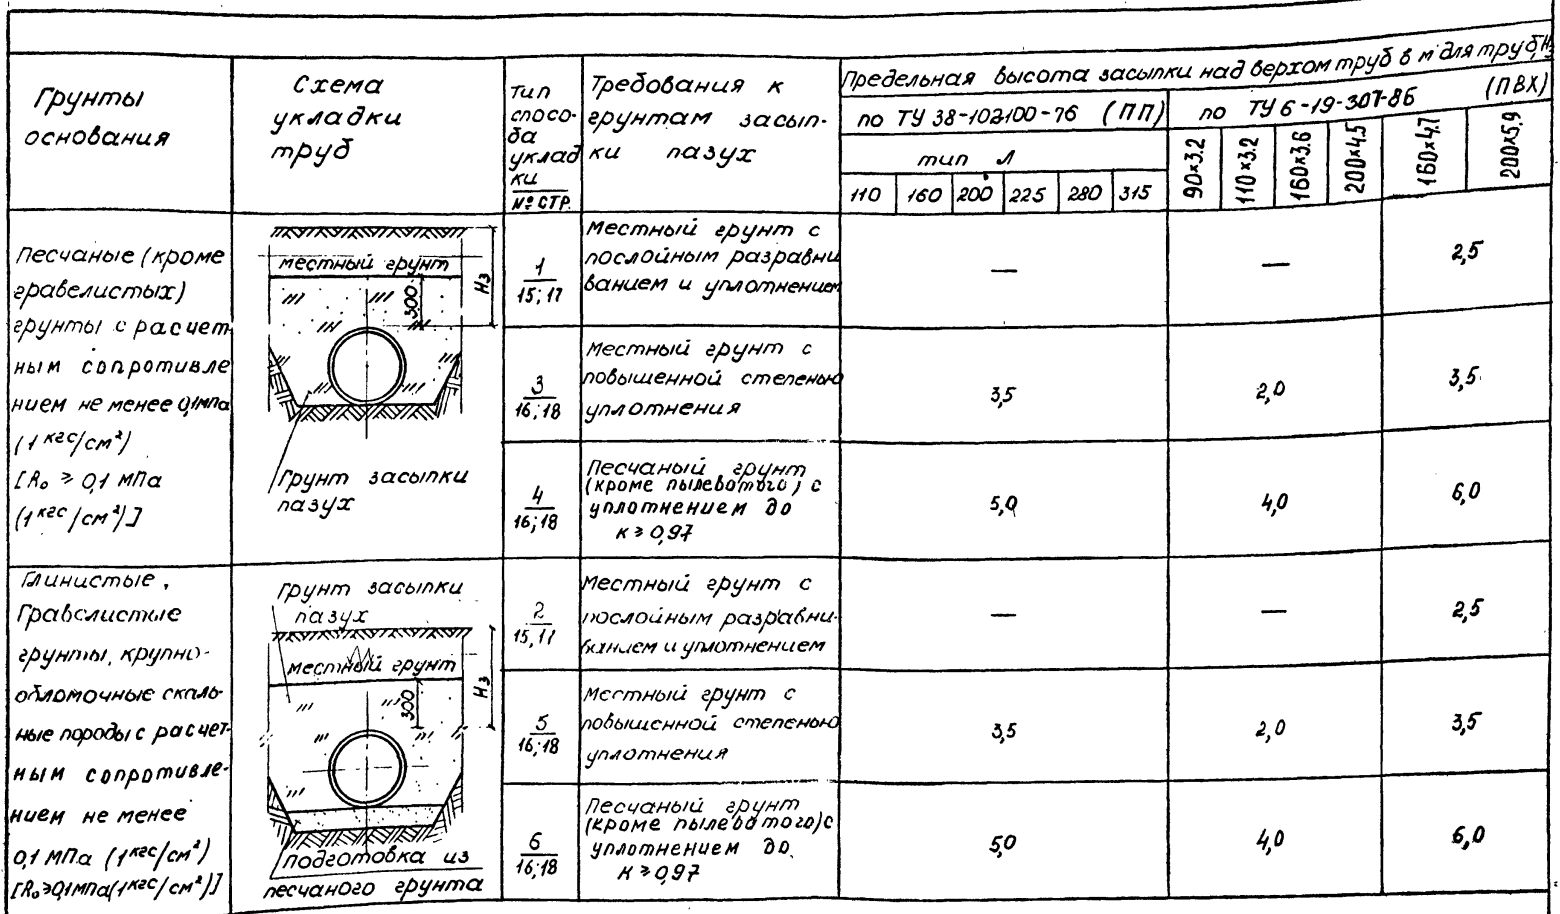 Грунты
основания
Схема
укладки
труб
Тип
спосо-
ба
уклад
ки
№ СТР.
Требования к
грунтам засып-
ки пазух
Предельная высота засыпки над верхом труб в м для труб, Hз
по ТУ 38-102100-76 (ПП)
по ТУ 6-19-307-86 (ПВХ)
тип Л
110 160 200 225 280 315
90×3.2
110×3.2
160×3.6
200×4.5
160×4,7
200×5,9
Песчаные (кроме
гравелистых)
грунты с расчет
ным сопротивле
нием не менее 0,1МПа
(1 кгс/см²)
[R₀ ≥ 0,1 МПа
(1 кгс/см²)]
местный грунт
300
Hз
Грунт засыпки
пазух
1
15; 17
Местный грунт с
послойным разравни
ванием и уплотнением
—
—
2,5
3
16; 18
Местный грунт с
повышенной степенью
уплотнения
3,5
2,0
3,5
4
16; 18
Песчаный грунт
(кроме пылеватого) с
уплотнением до
к ≥ 0,97
5,0
4,0
6,0
Глинистые,
Гравелистые
грунты, крупно-
обломочные скаль-
ные породы с расчет-
ным сопротивле-
нием не менее
0,1 МПа (1 кгс/см²)
[R₀≥0,1МПа(1кгс/см²)]
Грунт засыпки
пазух
местный грунт
300
Hз
подготовка из
песчаного грунта
2
15, 17
Местный грунт с
послойным разравни-
ванием и уплотнением
—
—
2,5
5
16; 18
Местный грунт с
повышенной степенью
уплотнения
3,5
2,0
3,5
6
16; 18
Песчаный грунт
(кроме пылеватого) с
уплотнением до
к ≥ 0,97
5,0
4,0
6,0